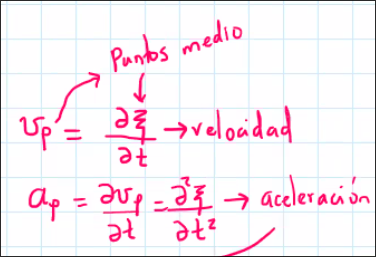 Puntos medio
v_p = ∂ξ/∂t → velocidad
a_p = ∂v_p/∂t = ∂²ξ/∂t² → aceleración